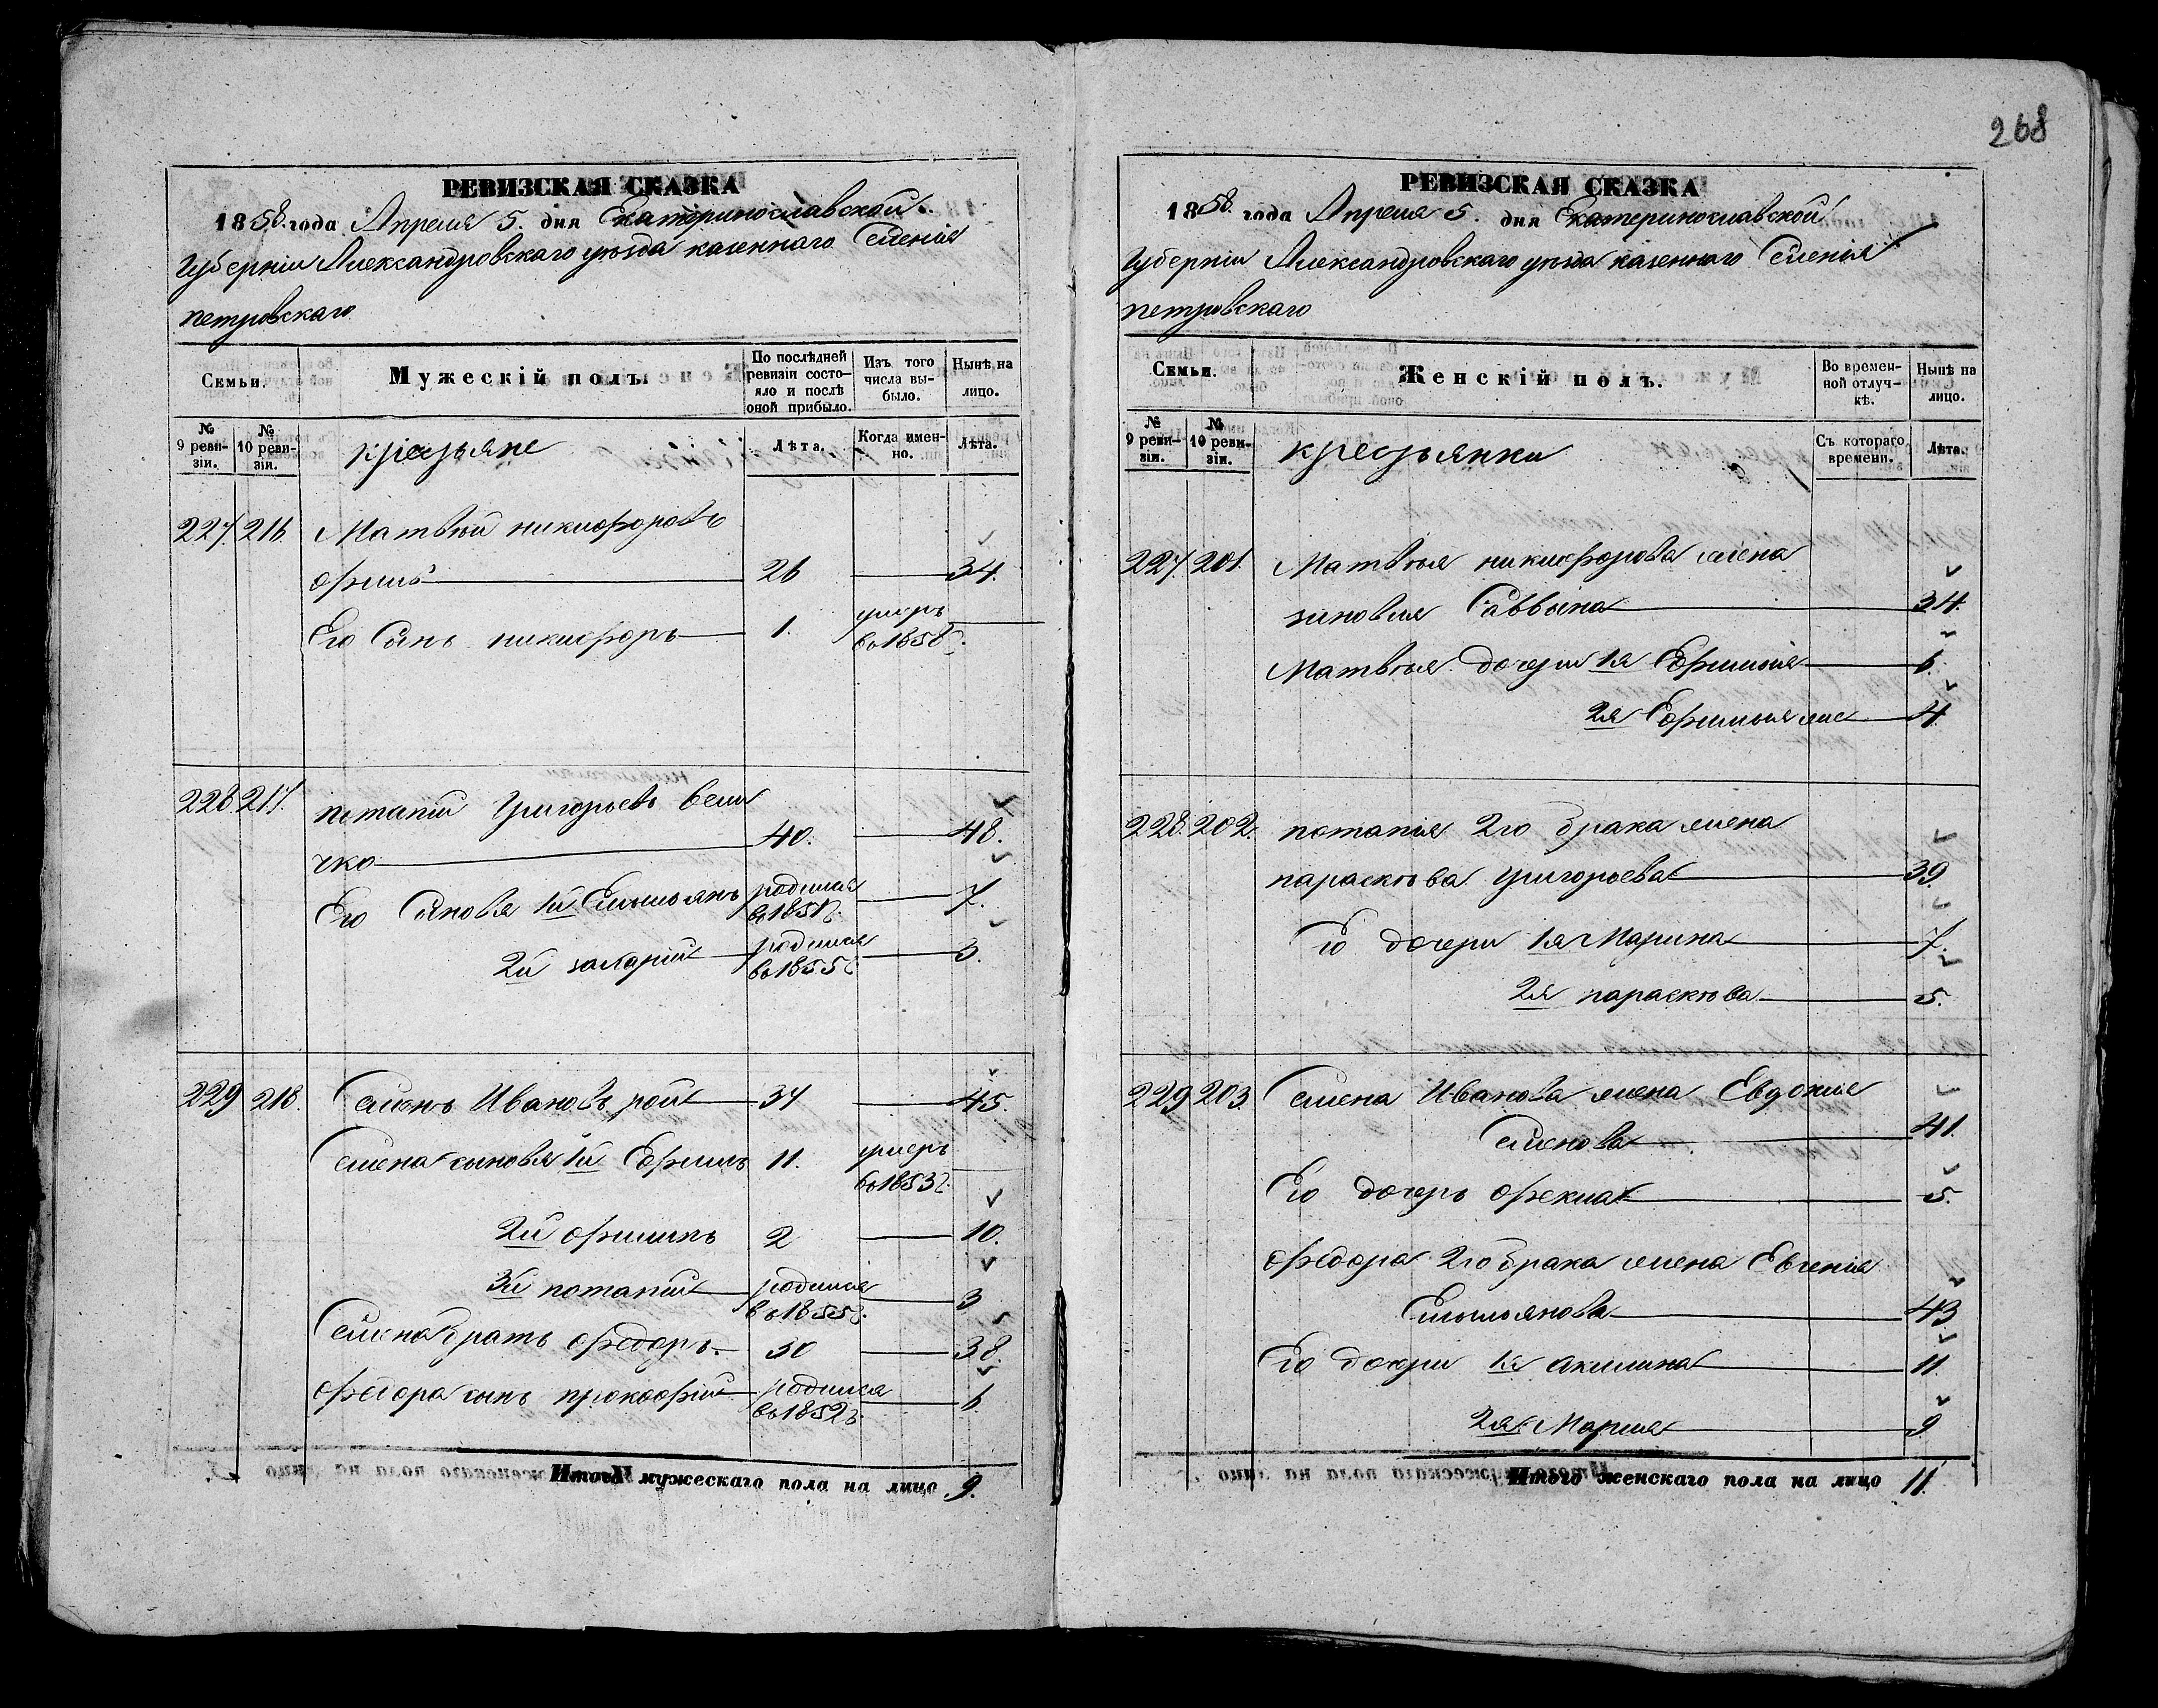 268
РЕВИЗСКАЯ СКАЗКА
1858 года Апреля 5. дня Екатеринославской
Губерніи Александровскаго уѣзда казеннаго Селенія
Петровскаго
Семьи.
Мужескій полъ.
По послѣдней ревизіи состояло и послѣ оной прибыло.
Изъ того числа выбыло.
Нынѣ на лицо.
№ 9 ревизіи.
№ 10 ревизіи.
Крестьяне
Лѣта.
Когда именно.
Лѣта.
227. 216. Матвѣй Никифоровъ
26 34.
Его Сынъ Никифоръ 1. умеръ во 1858 г.
228. 217. Потапій Григорьевъ Вели
чко 40. 48.
Его Сыновья 1й Емельянъ родился во 1851 г. 7.
2й Захарій родился во 1855 г. 3.
229 218. Семенъ Ивановъ Рой 37 45.
Семена сыновья 1й Ефимъ 11. умеръ во 1853 г.
2й Филипъ 2 10.
3й Потапій родился во 1855 г. 3
Семена братъ Федоръ. 30 38.
Федора сынъ Прокофій родился во 1852 г. 6
Итого мужескаго пола на лицо 9.
РЕВИЗСКАЯ СКАЗКА
1858. года Апреля 5. дня Екатеринославской
Губерніи Александровскаго уѣзда казеннаго Селенія
Петровскаго
Семьи.
Женскій полъ.
Во временной отлучкѣ.
Нынѣ на лицо.
№ 9 ревизіи.
№ 10 ревизіи.
Крестьянки
Съ котораго времени.
Лѣта.
227. 201. Матвѣя Никифорова жена
Зиновия Саввина 34.
Матвѣя дочери 1я Ефимия 6.
2я Ефимия же 4.
228. 202. Потапия 2го брака жена
Параскѣва Григорьева 39.
Его дочери 1я Марина 7.
2я Параскѣва 5.
229 203. Семена Иванова жена Евдокия
Семенова 41.
Его дочерь Фекла 5.
Федора 2го брака жена Евгенія
Емельянова 43
Его дочери 1я Акилина 11.
2я Мария 9
Итого женскаго пола на лицо 11.